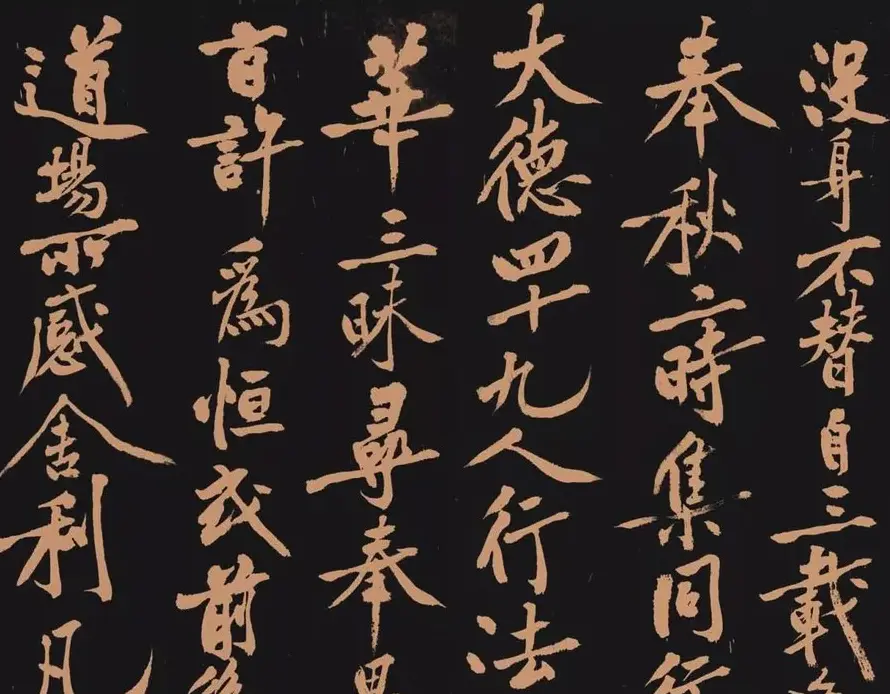 沒身不替自三載
奉秋二時集同行
大德四十九人行法
華三昧尋奉恩
旨許爲恒式前後
道場所感舍利凡